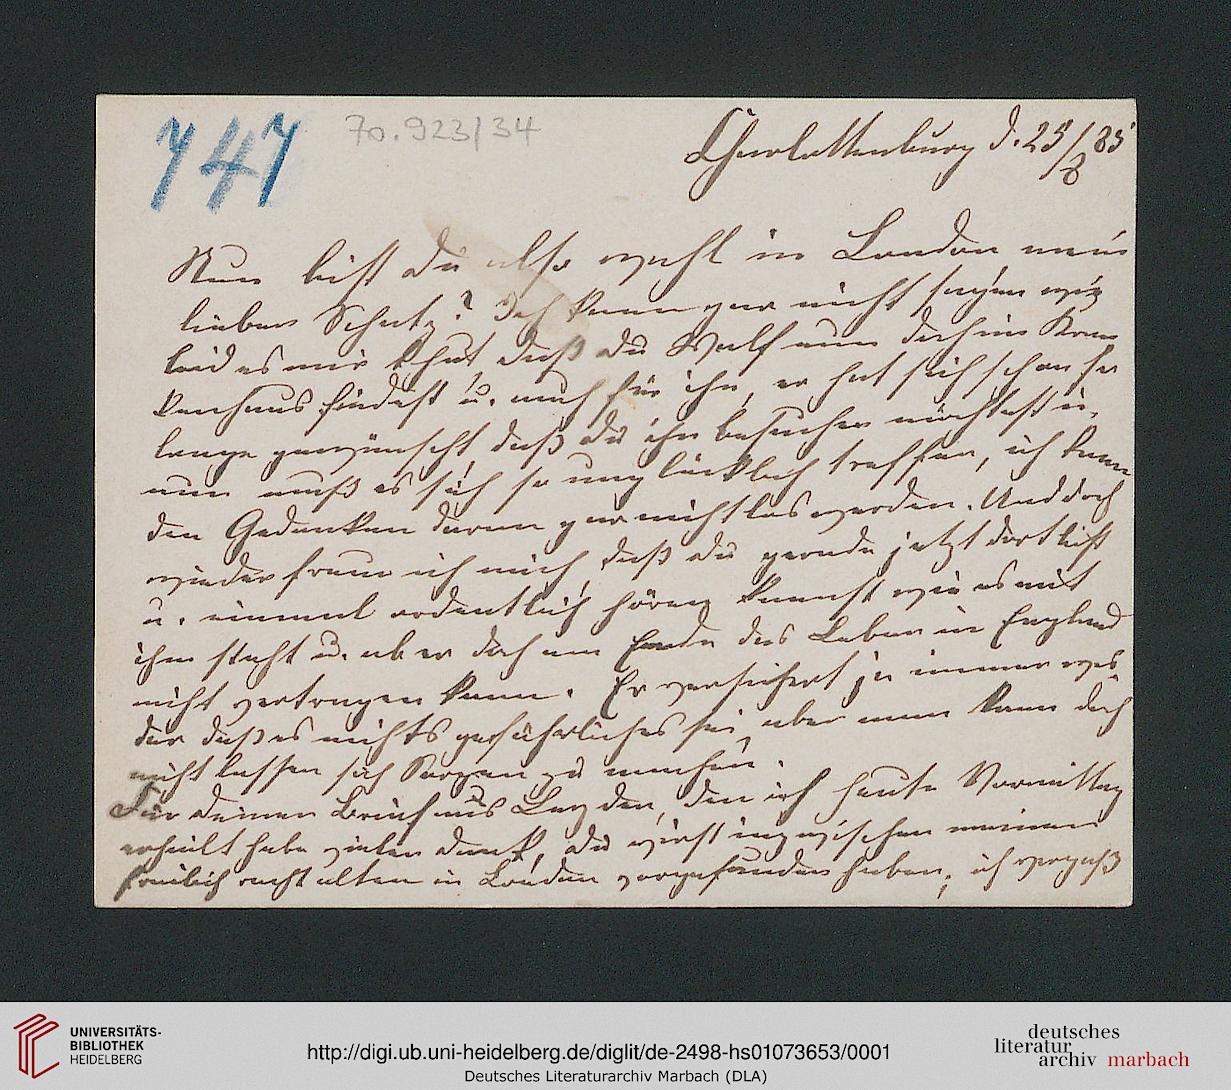 747
70.923/34
Charlottenburg d. 25/8 85
Nun bist Du also wohl in London mein
lieber Schatz? Ich kann gar nicht sagen wie
leid es mir thut daß Du Wolf nun doch im Kran
kenhaus findest u. auch für ihn, er hat sich schon so
lange gewünscht daß Du ihn besuchen möchtest u.
nun muß es sich so unglücklich treffen, ich kann
den Gedanken daran gar nicht los werden. Und doch
wieder freue ich mich, daß Du gerade jetzt dort bist
u. einmal ordentlich hören kannst wie es mit
ihm steht u. ob er doch am Ende das Leben in England
nicht vertragen kann. Er versichert ja immer wie
der daß es nichts gefährliches sei, aber man kann doch
nicht lassen sich Sorgen zu machen.
Für Deinen Brief aus Leyden, den ich heute Vormittag
erhielt habe vielen Dank, Du wirst inzwischen meinen
freilich recht alten in London vorgefunden haben, ich vergaß
UNIVERSITÄTS-
BIBLIOTHEK
HEIDELBERG
http://digi.ub.uni-heidelberg.de/diglit/de-2498-hs01073653/0001
Deutsches Literaturarchiv Marbach (DLA)
deutsches
literatur
archiv marbach